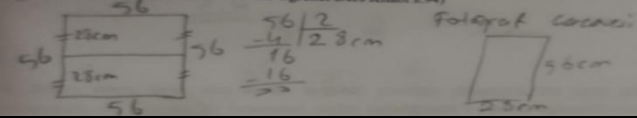 56
28cm
56
56
28cm
56
56 | 2
- 4 28cm
16
- 16
Fotoğraf
56cm
28cm